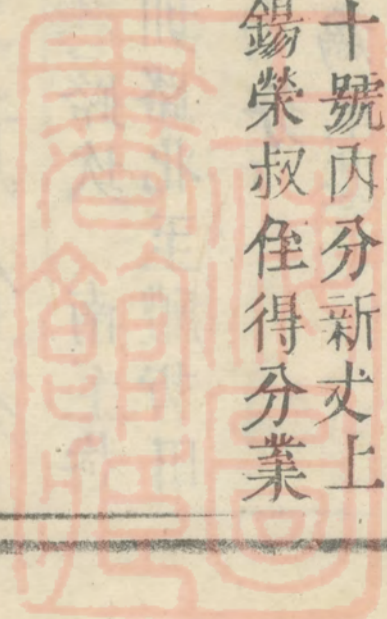 十號內分新丈上
錫榮叔侄得分業